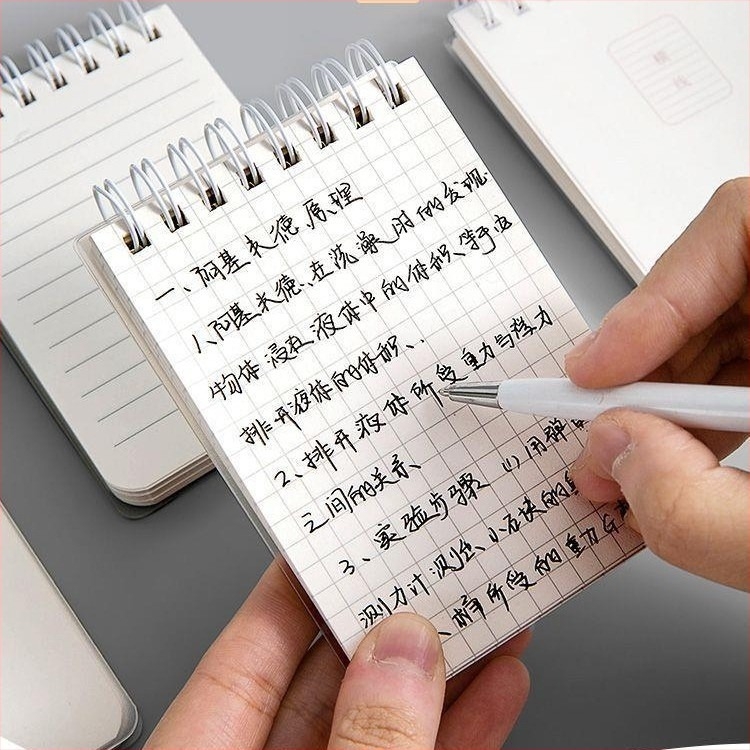 一、阿基米德原理
1、阿基米德、在洗澡时的发现
物体浸在液体中的体积等于它
排开液体的体积、
2、排开液体所受重力与浮力
之间的关系
3、实验步骤 (1)用弹簧
测力计测出、小石块的
、桶所受的重力